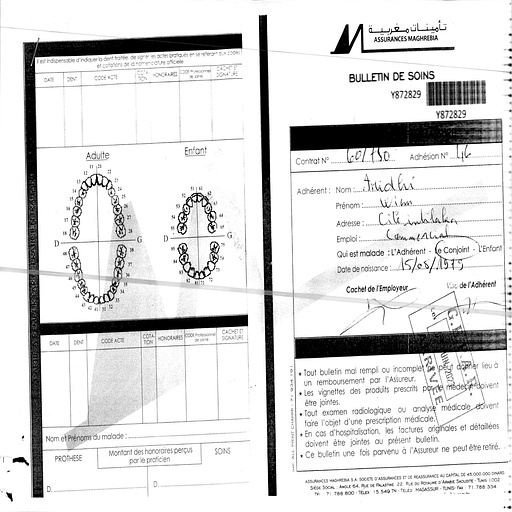 Il est indispensable d'indiquer la dent traitée, de signer les actes pratiqués en se référant aux codes
et cotations de la nomenclature officielle
DATE DENT CODE ACTE COTATION HONORAIRES CODE Professionnel de santé CACHET ET SIGNATURE
Adulte Enfant
D G D G
DATE DENT CODE ACTE COTATION HONORAIRES CODE Professionnel de santé CACHET ET SIGNATURE
Nom et Prénoms du malade :
PROTHESE Montant des honoraires perçus par le praticien SOINS
D D
تأمينات مغربية
ASSURANCES MAGHREBIA
BULLETIN DE SOINS
Y872829
Y872829
Contrat N° 60/130 Adhésion N° 46
Adhérent : Nom : Aridhi
Prénom : Wim
Adresse : Cité
Emploi : Commercial
Qui est malade : L'Adhérent - Le Conjoint - L'Enfant
Date de naissance : 15/05/1975
Cachet de l'Employeur Visa de l'Adhérent
• Tout bulletin mal rempli ou incomplet ne peut donner lieu à
un remboursement par l'Assureur.
• Les vignettes des produits prescrits par le médecin doivent
être jointes.
• Tout examen radiologique ou analyse médicale doivent
faire l'objet d'une prescription médicale.
• En cas d'hospitalisation, les factures originales et détaillées
doivent être jointes au présent bulletin.
• Ce bulletin une fois parvenu à l'Assureur ne peut être retiré.
ASSURANCES MAGHREBIA S.A. SOCIETE D'ASSURANCES ET DE REASSURANCE AU CAPITAL DE 45.000.000 DINARS
SIÈGE SOCIAL : ANGLE 64, RUE DE PALESTINE 22, RUE DU ROYAUME D'ARABIE SAOUDITE - TUNIS 1002
Tél : 71 788 800 - TÉLEX 15 549 TN - TÉLEG MAGASSUR - TUNIS - FAX : 71 788 334